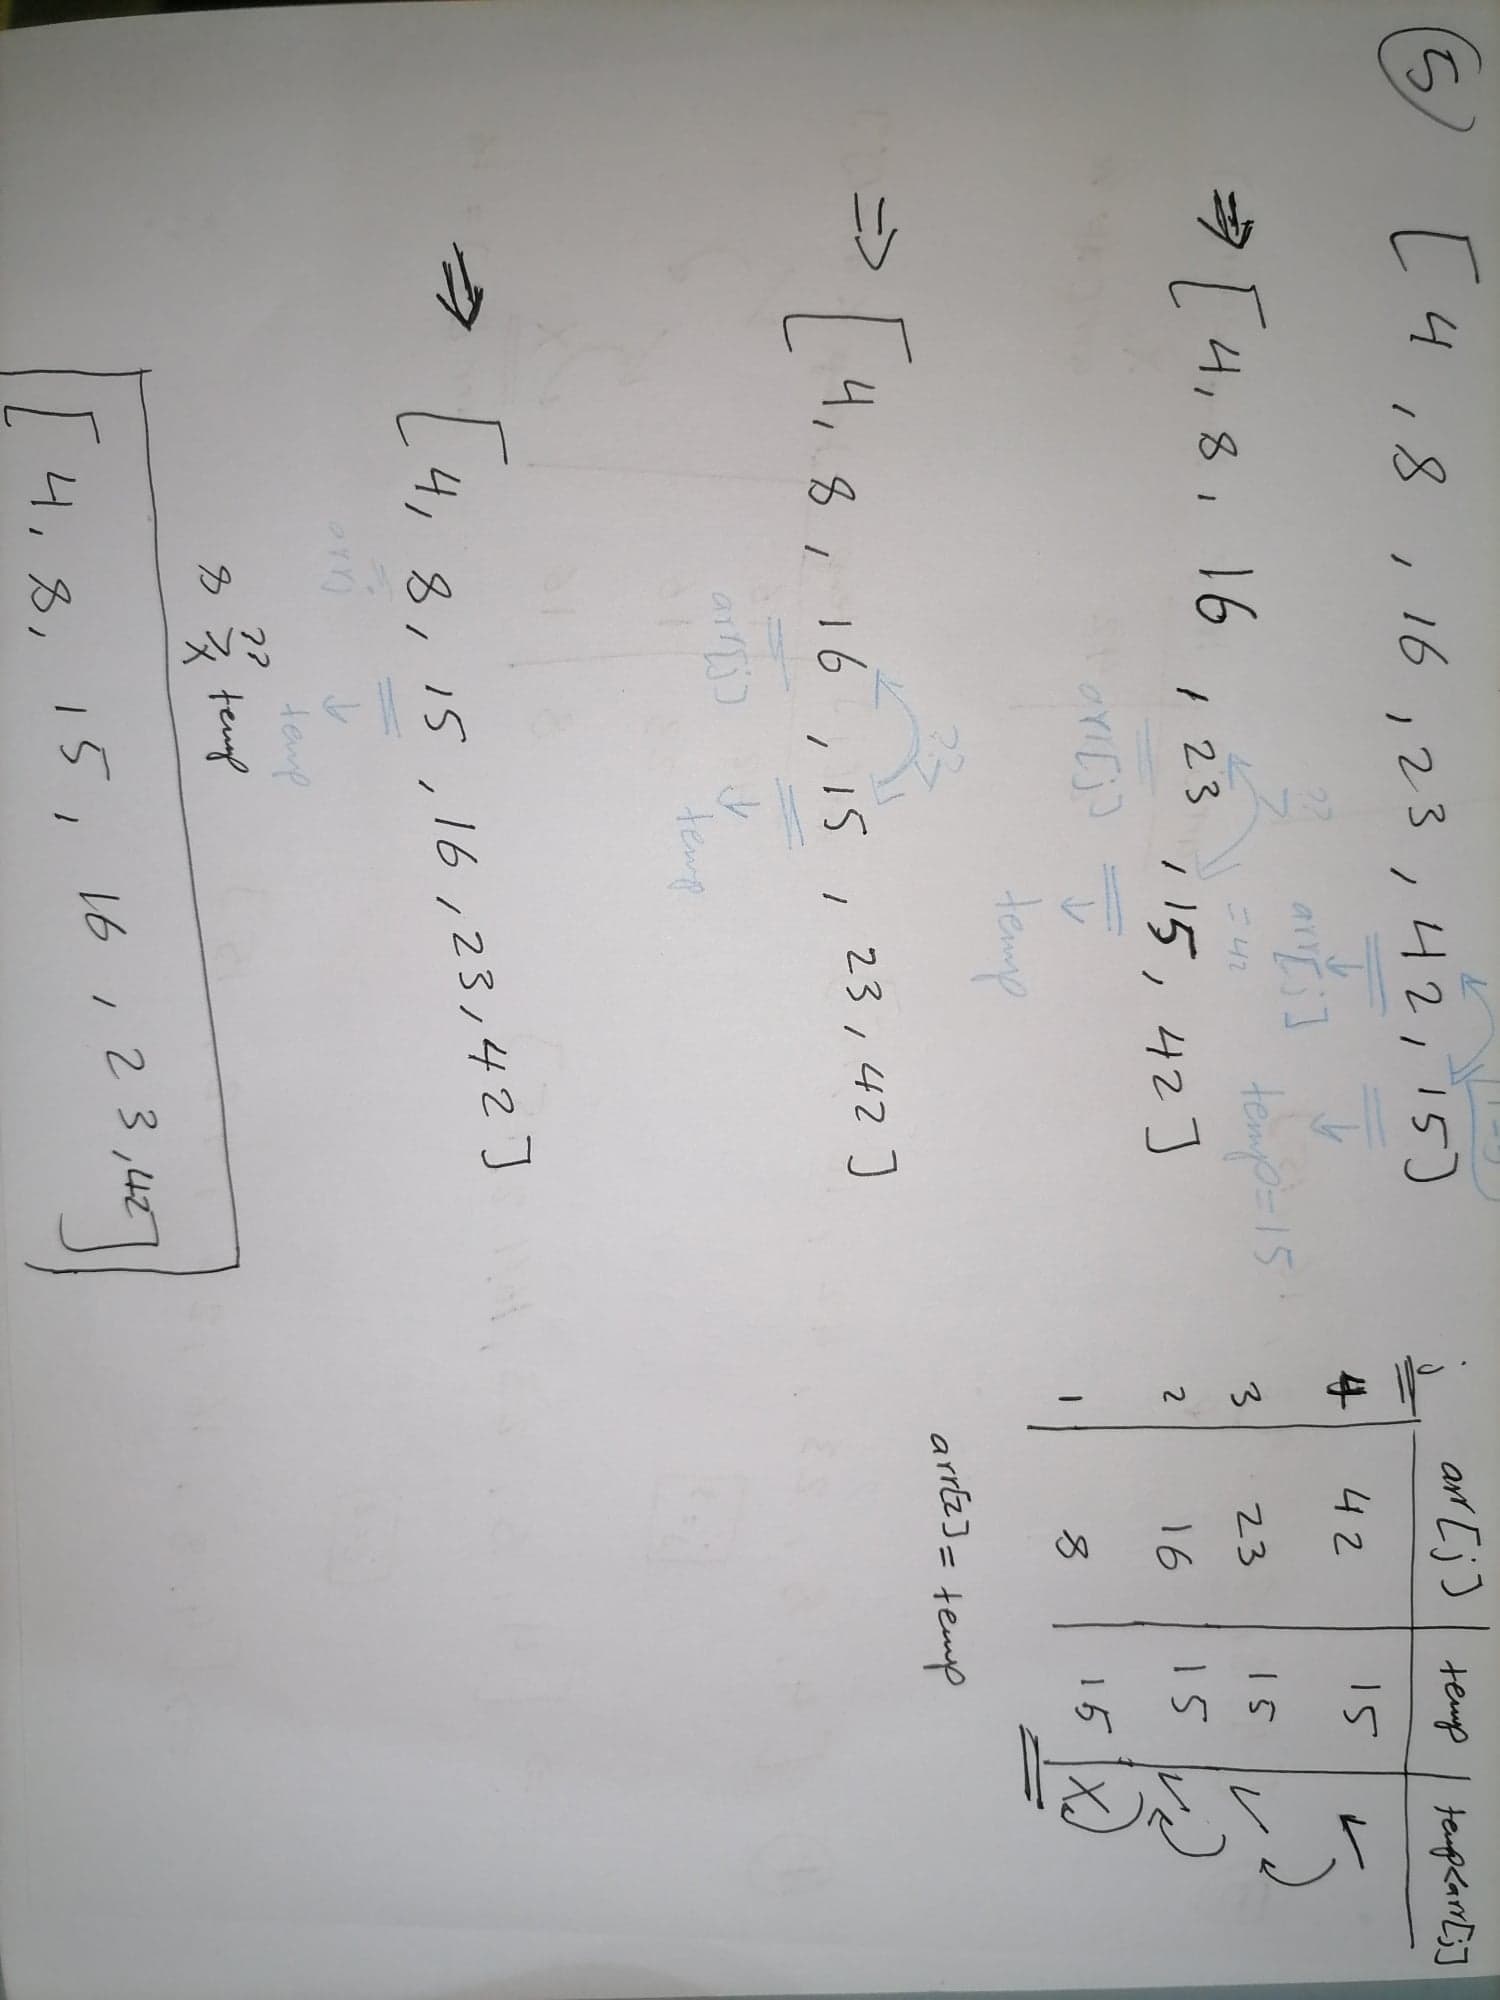 5
[ 4 , 8 , 16 , 23 , 42 , 15 ]
?? arr[j] temp=15
=42
⇒ [ 4, 8, 16 , 23 , 15, 42 ]
arr[j]
temp
??
⇒ [ 4, 8, 16 , 15 , 23, 42 ]
arr[j]
temp
⇒ [ 4, 8, 15, 16, 23, 42 ]
arrj
temp
??
8 > temp
[ 4, 8, 15, 16, 23, 42 ]
j arr[j] temp temp<arr[j]
4 42 15 ✓
3 23 15 ✓
2 16 15 ✓
1 8 15 X
arr[2] = temp